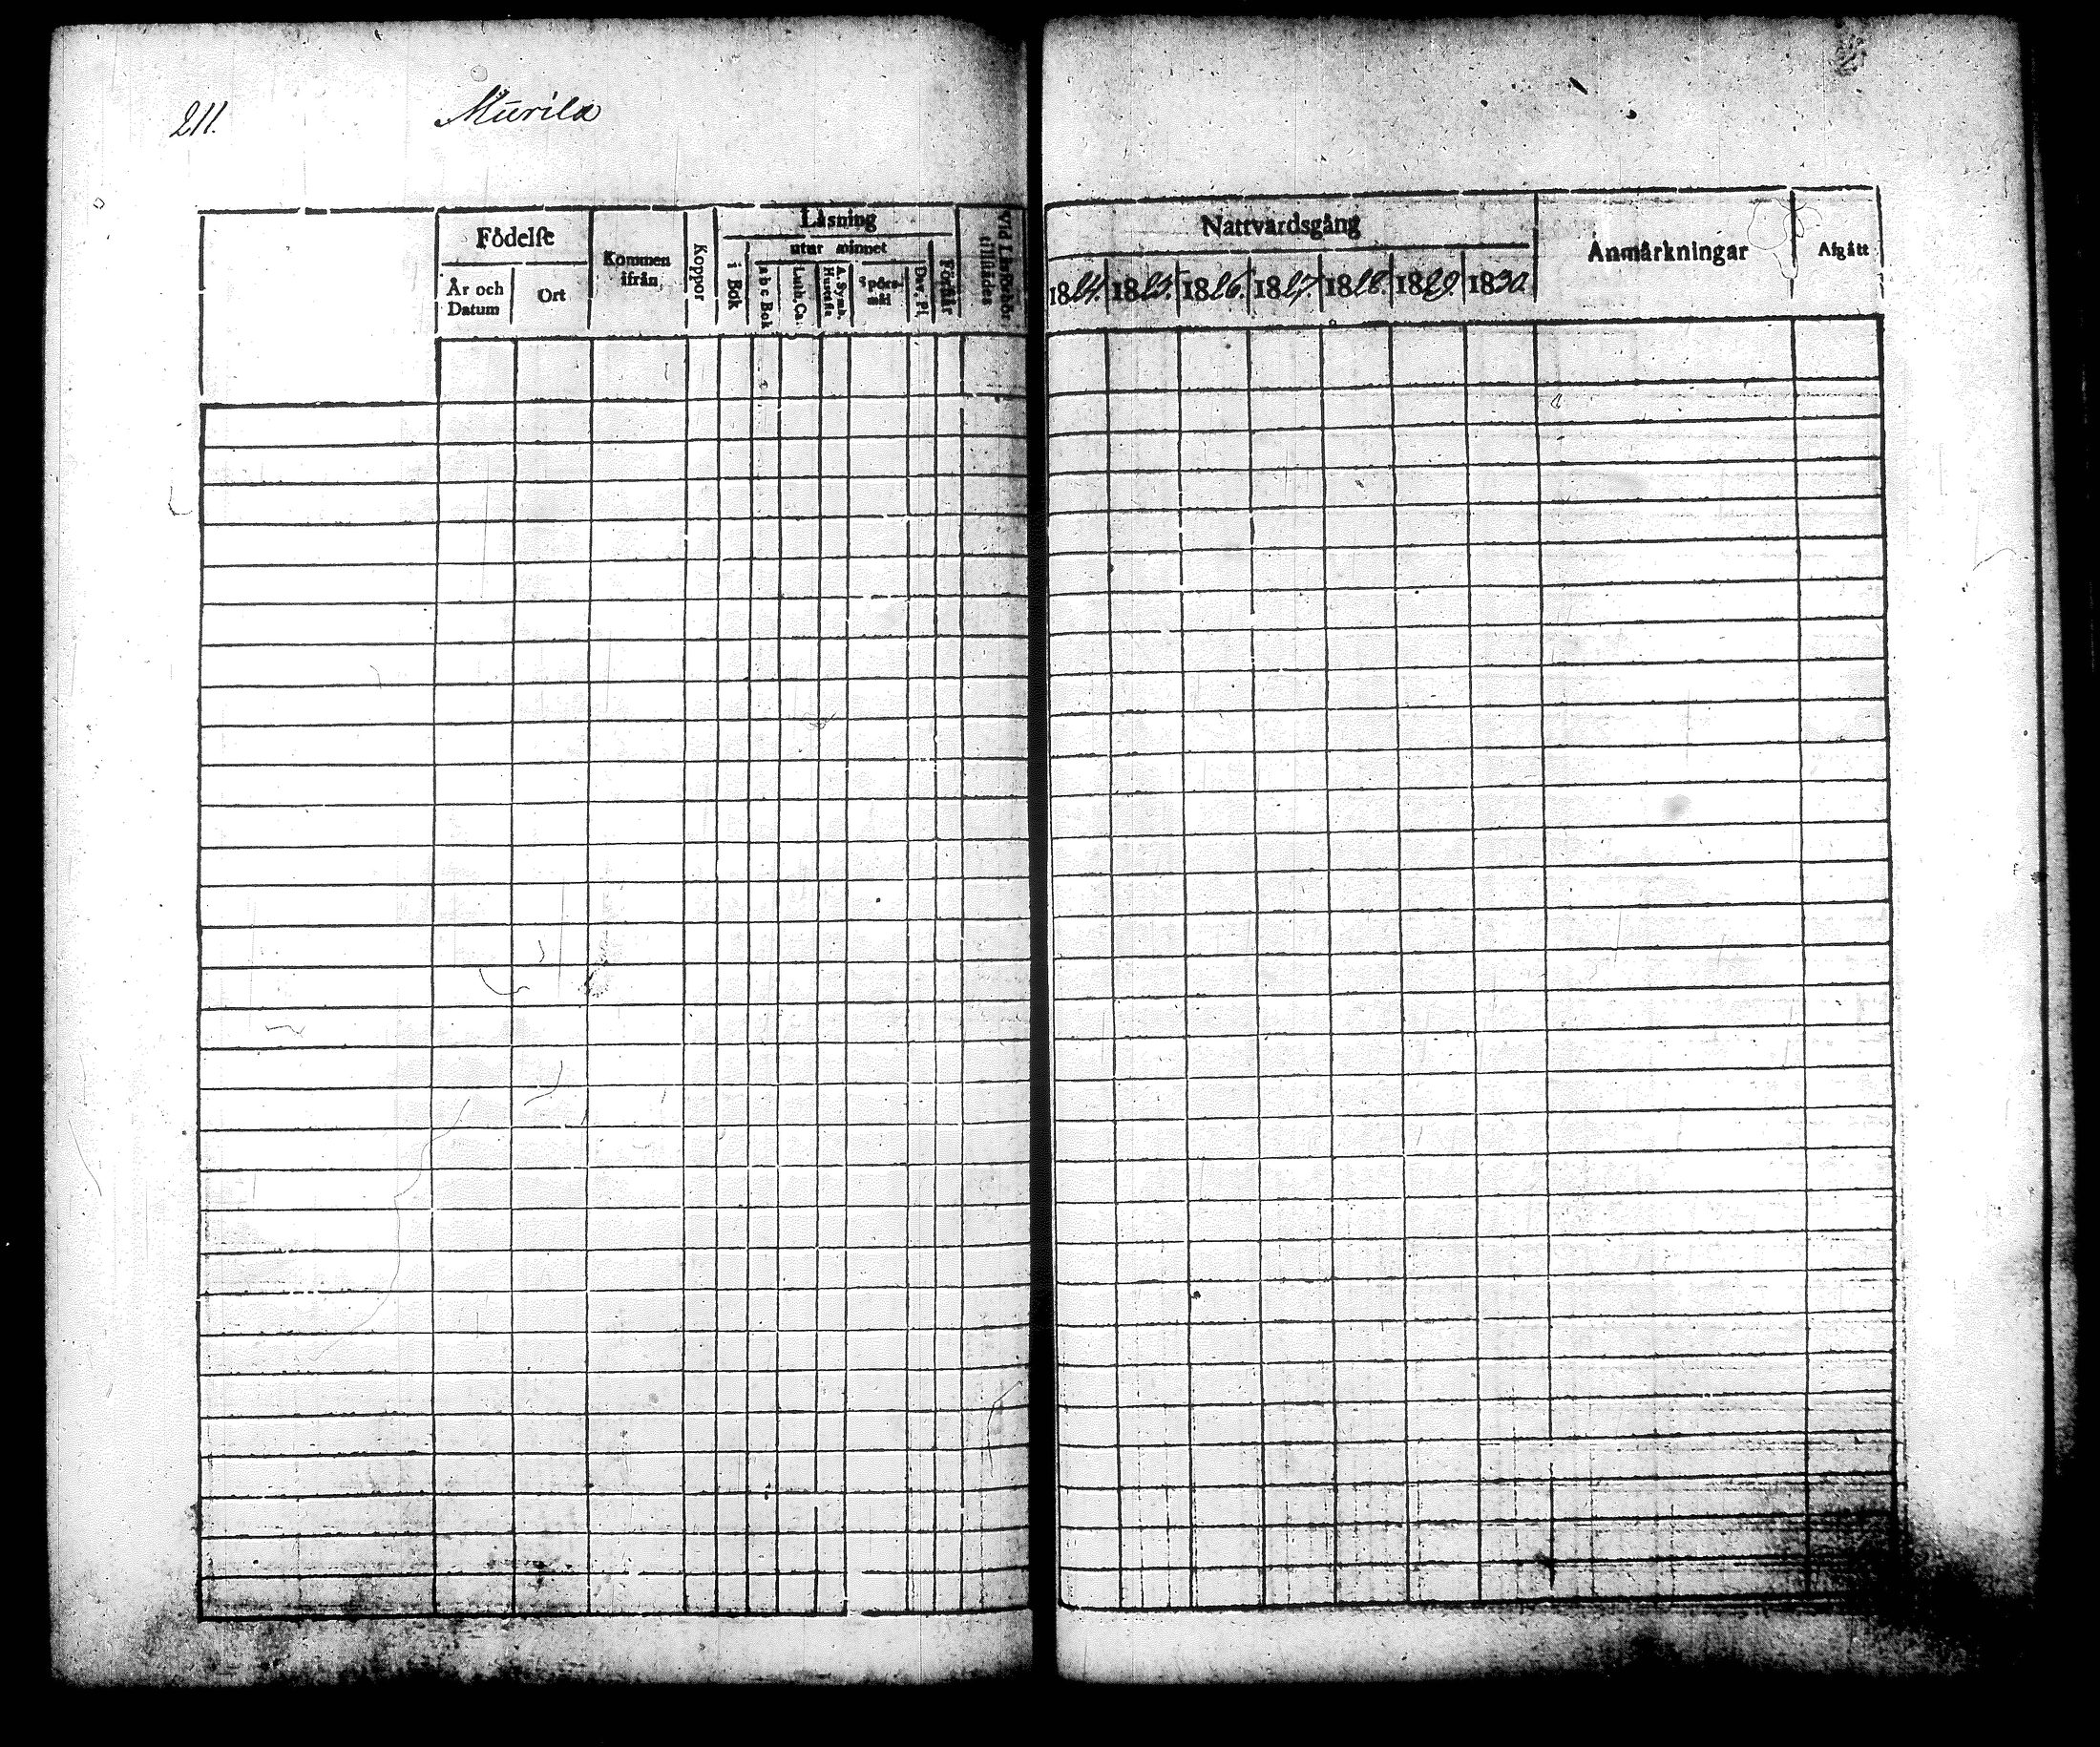 211. Murila
Födelse
År och Datum
Ort
Kommen ifrån
Koppor
Läsning
i Bok
utur minnet
a b c Bok
Luth. Ca.
A. Symb. Hustafla
Spörs-mål
Dav. Ps.
Förstår
Vid Läsförhör tillstädes
Nattvardsgång
1824. 1825. 1826. 1827. 1828. 1829. 1830.
Anmärkningar
Afgått